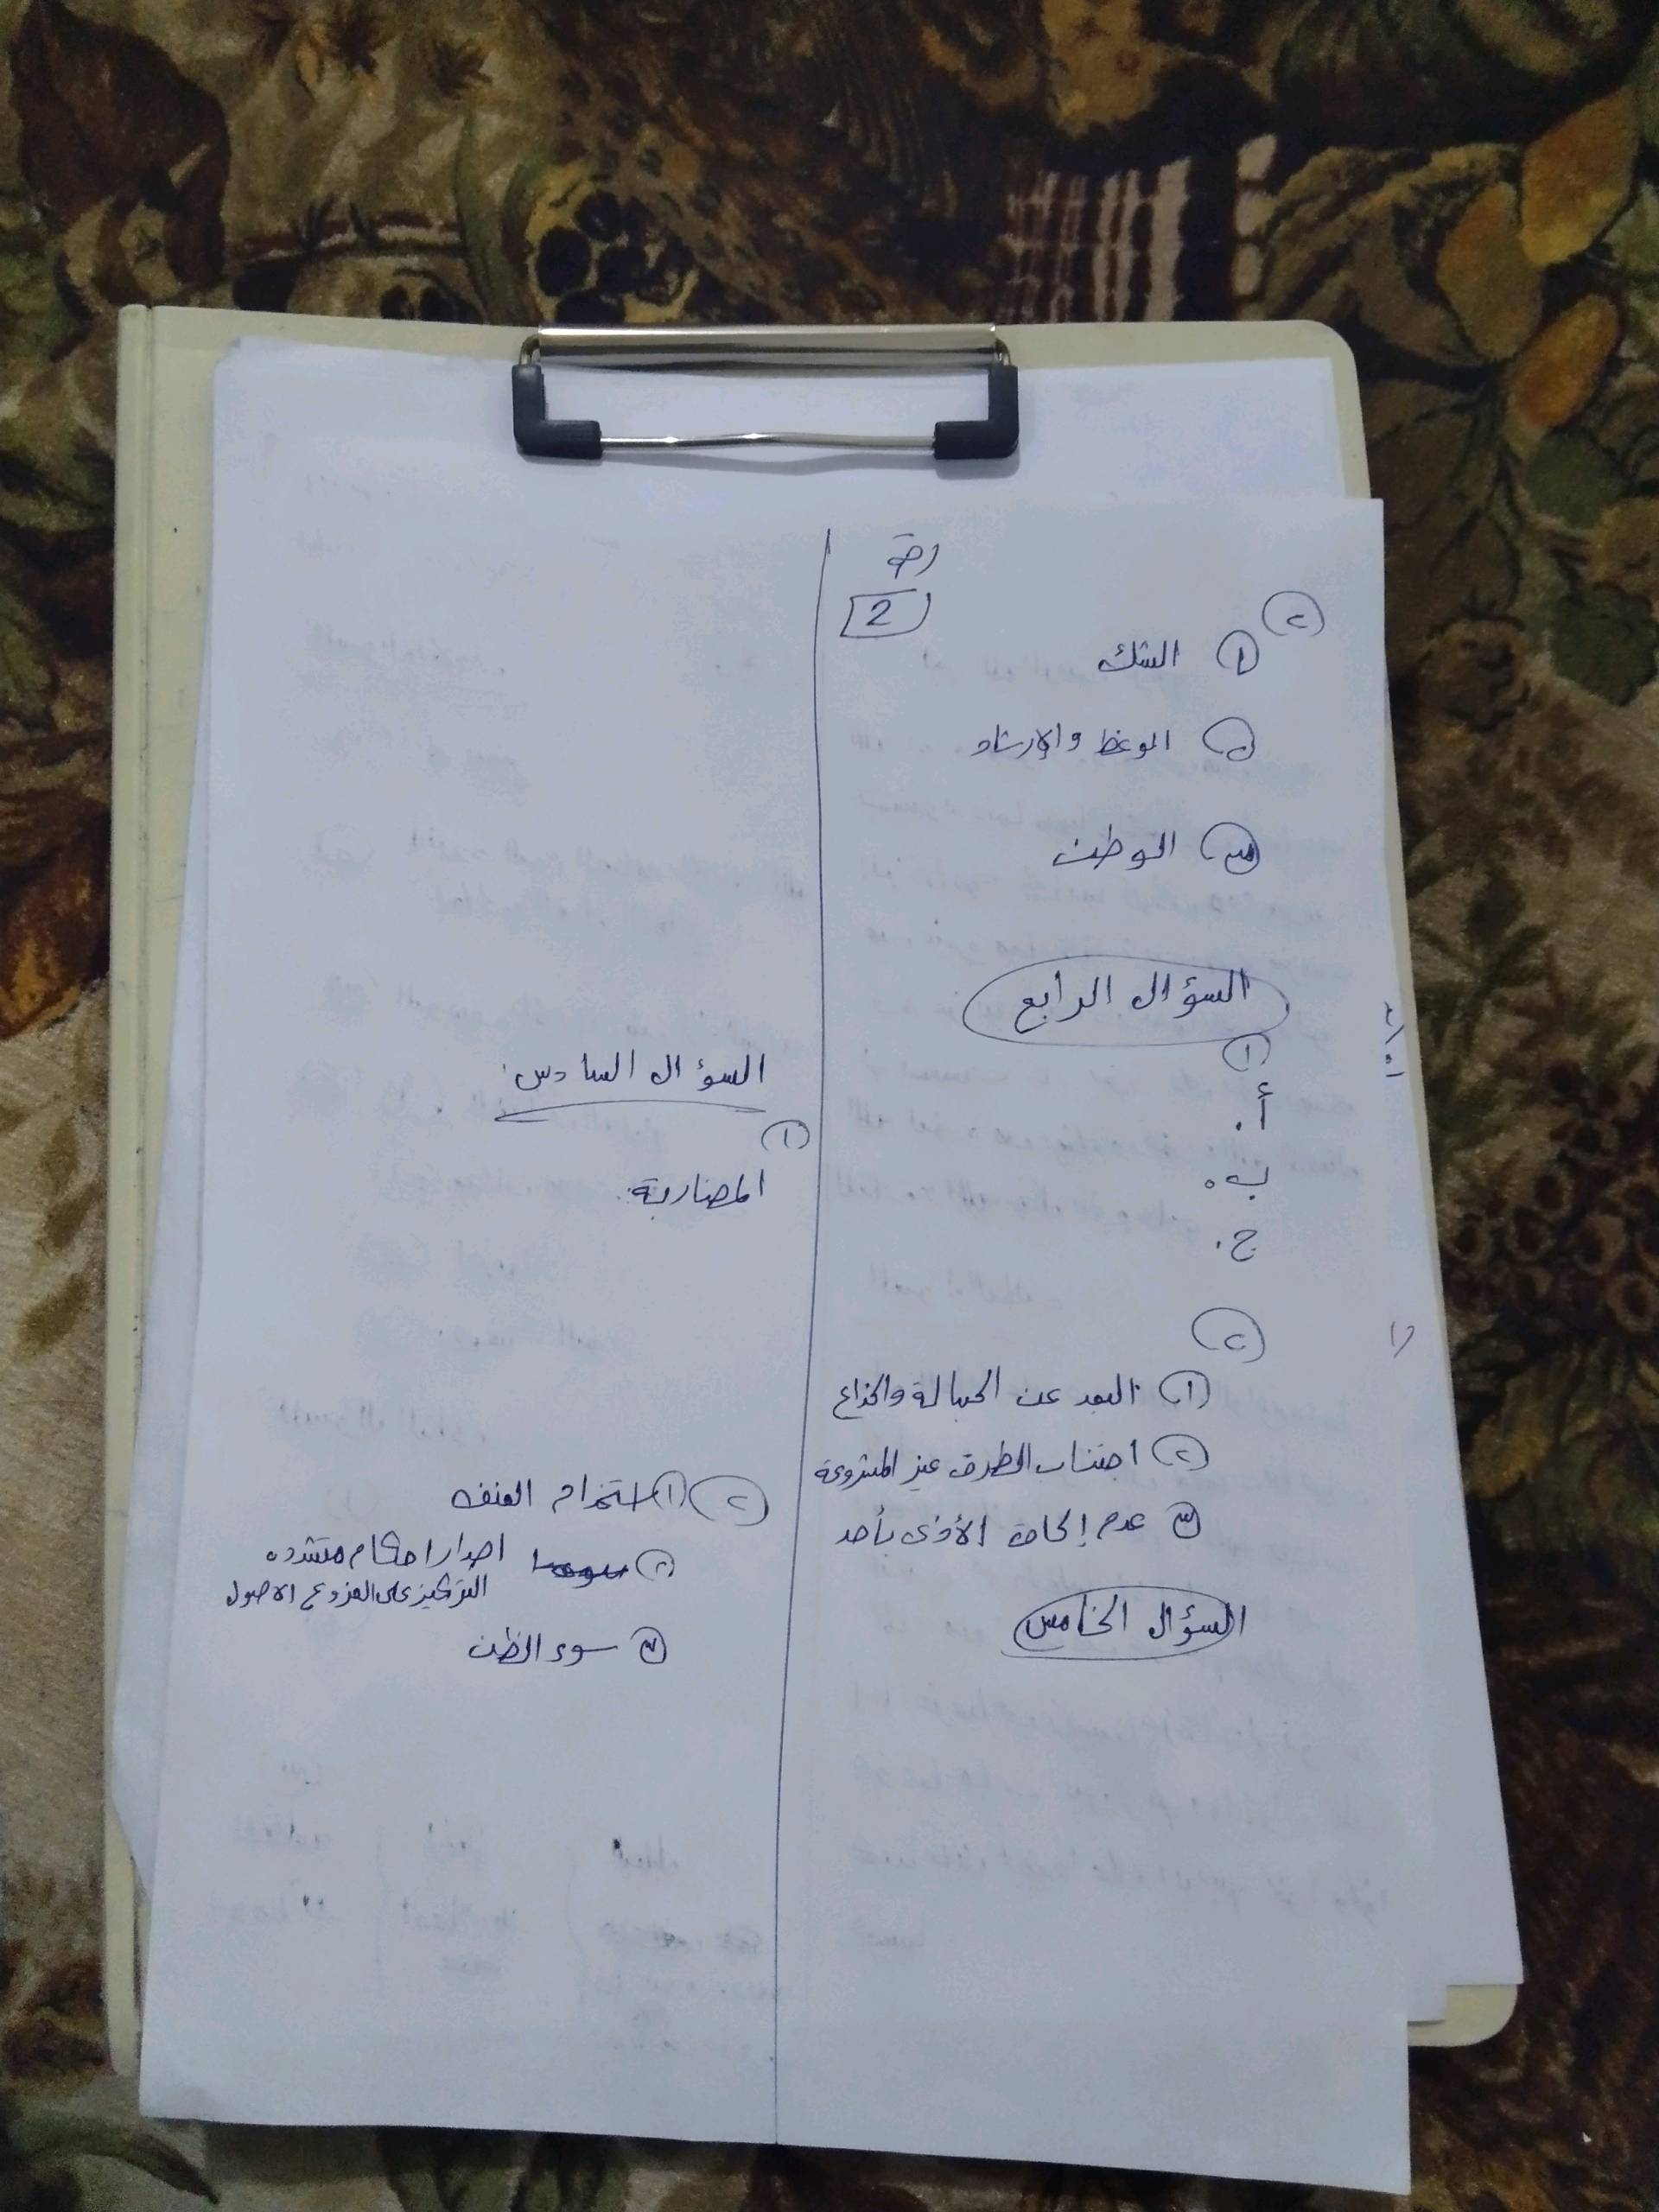 2
٢
١ الشك
٢ الوعظ والإرشاد
٣ الوطن
السؤال الرابع
١
أ.
ب.
ج.
٢
١ البعد عن الحيالة والخداع
٢ اجتناب الطرق غير المشروعة
٣ عدم إلحاق الأذى بأحد
السؤال الخامس
السؤال السادس:
١
المضاربة.
٢ ١ استخدام العنف
٢ اصدار احكام متشدده
التركيز على الفروع الاصول
٣ سوء الظن